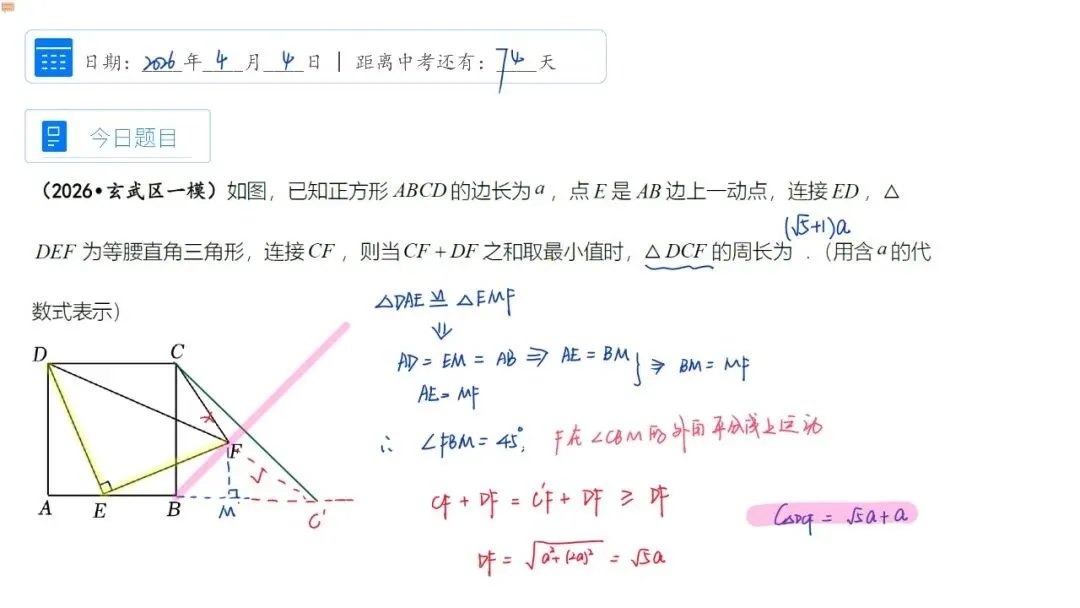 日期：2026年4月4日 | 距离中考还有：74天
今日题目
（2026•玄武区一模）如图，已知正方形ABCD的边长为a，点E是AB边上一动点，连接ED，△
DEF为等腰直角三角形，连接CF，则当CF+DF之和取最小值时，△DCF的周长为 (√5+1)a .（用含a的代
数式表示）
△DAE≌△EMF
⇓
AD=EM=AB ⇒ AE=BM } ⇒ BM=MF
AE=MF
∴ ∠FBM=45°, F在∠CBM的外角平分线上运动
CF+DF=C'F+DF≥DF
DF=√a²+(2a)²=√5a
C△DCF=√5a+a
D C
F
A E B M C'